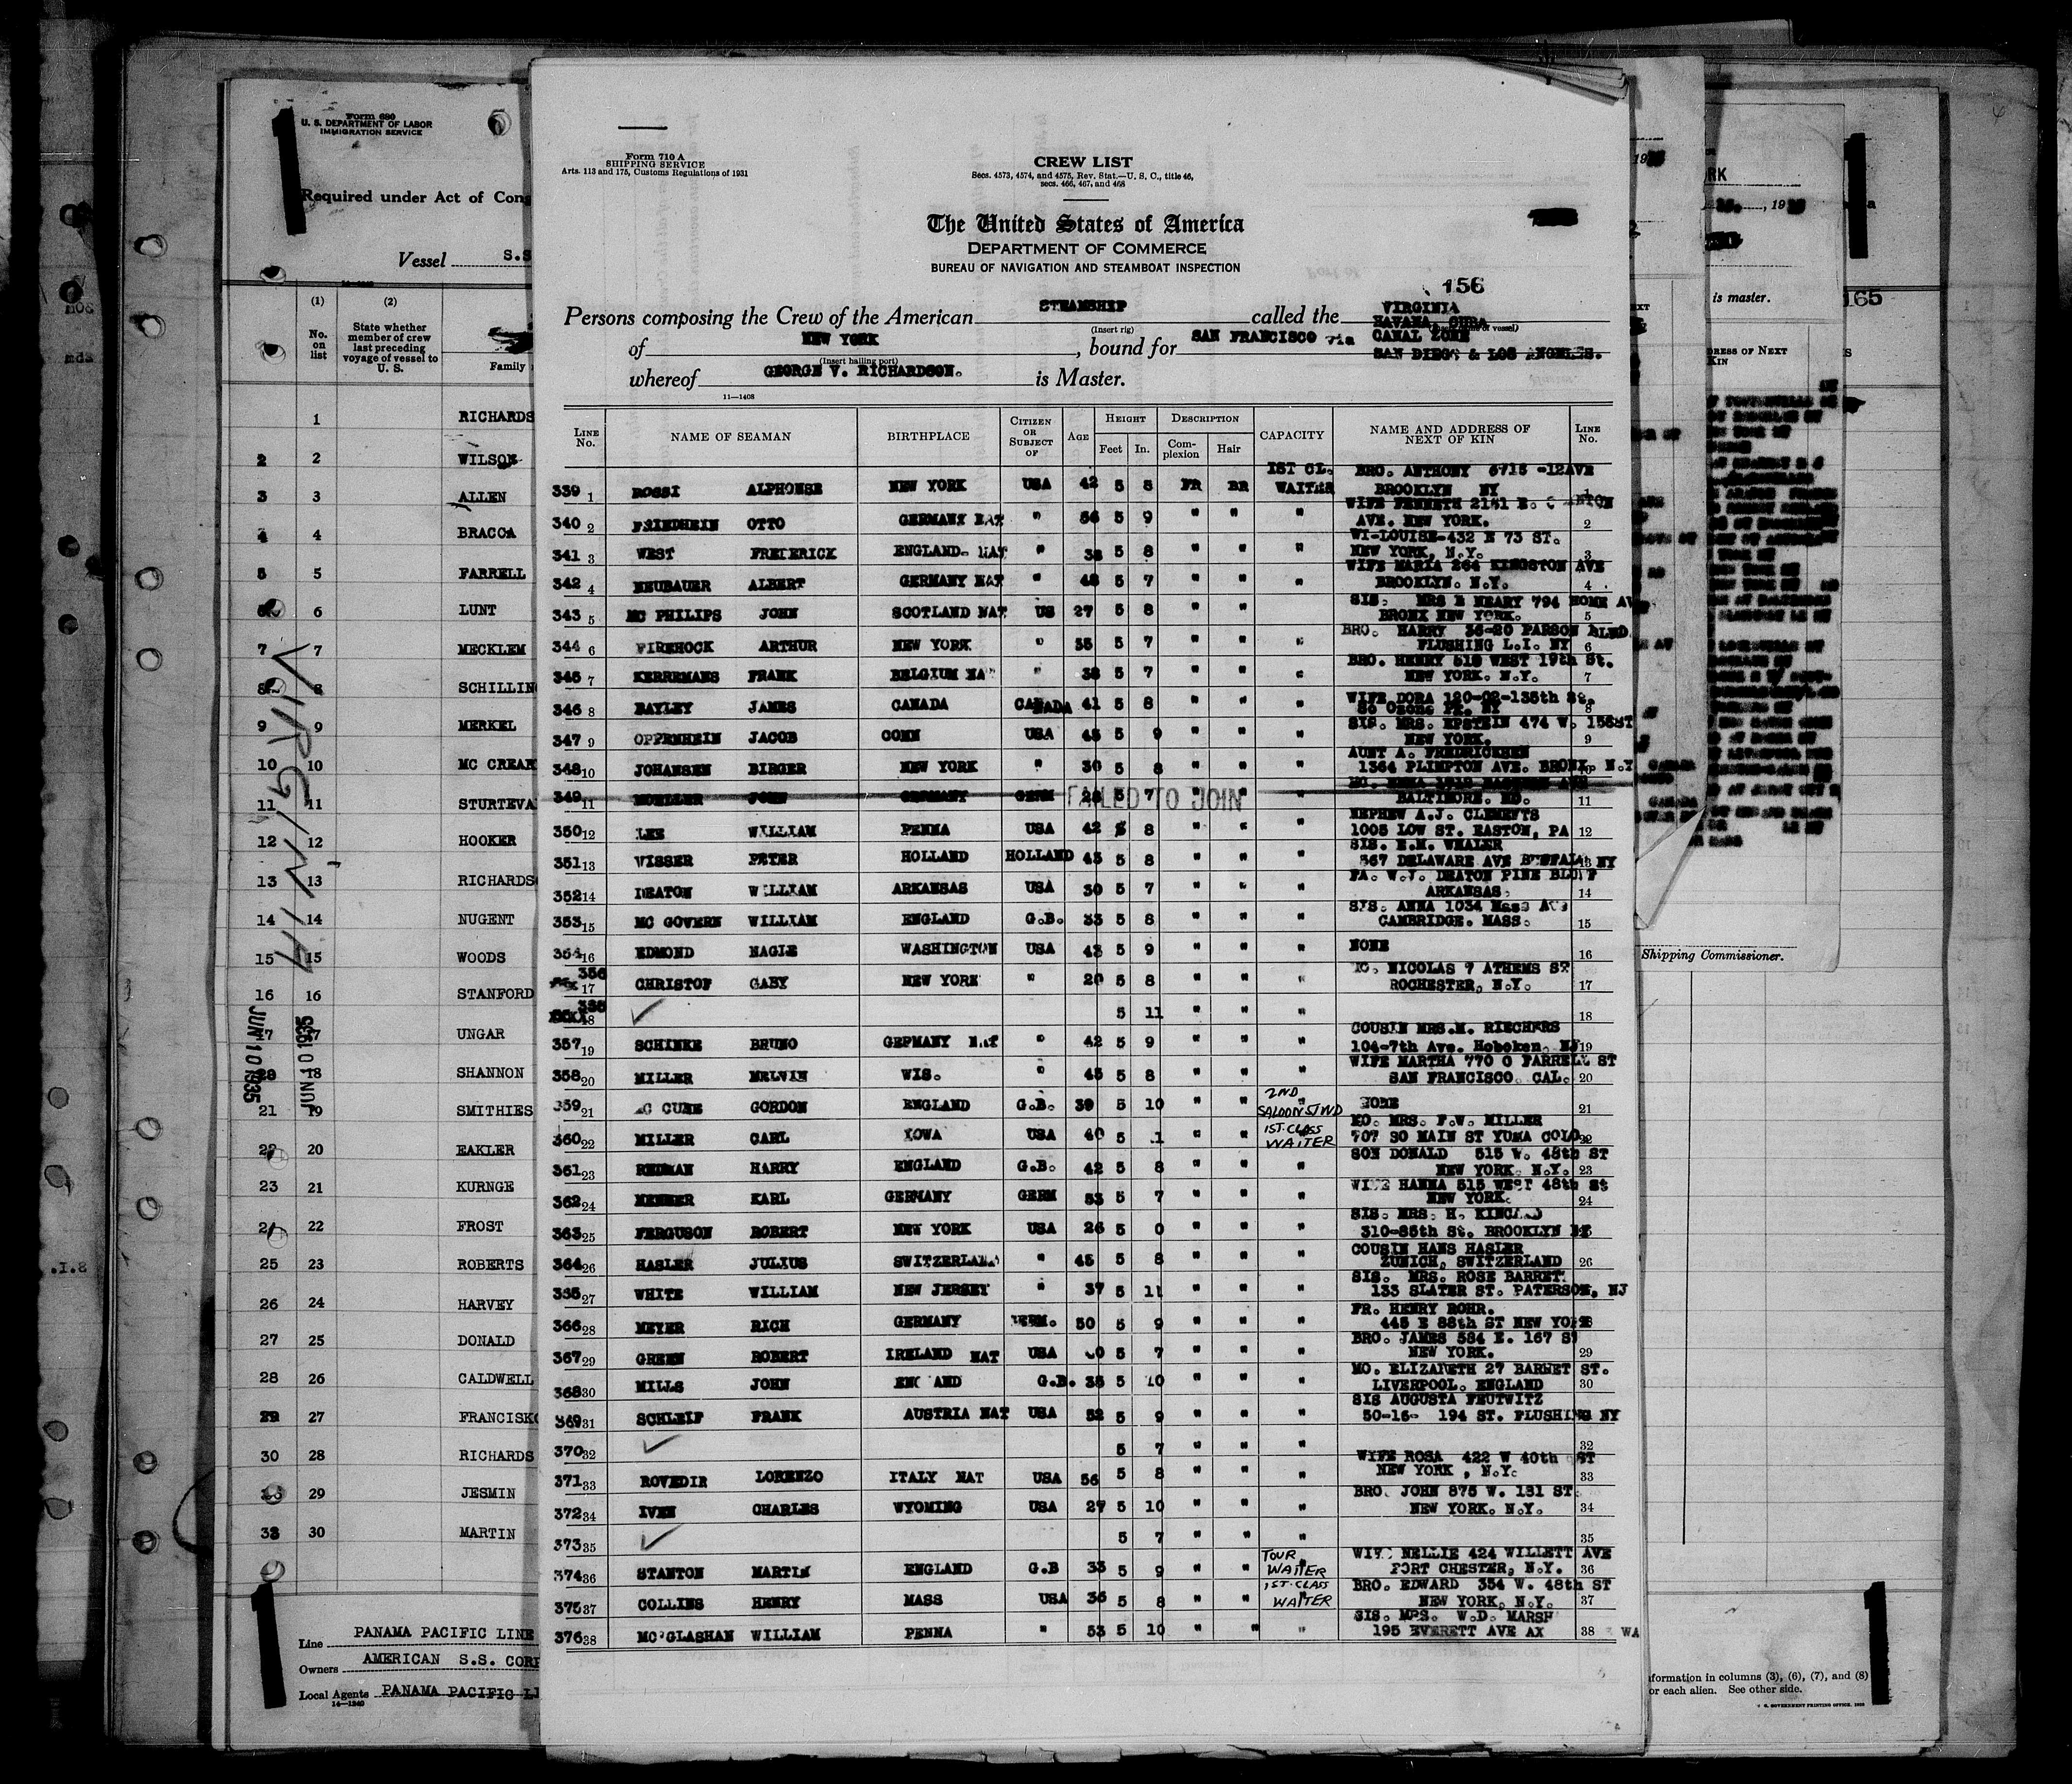 Form 680
U. S. DEPARTMENT OF LABOR
IMMIGRATION SERVICE
Required under Act of Cong
Vessel S.S
(1) (2)
No. on list
State whether member of crew last preceding voyage of vessel to U. S.
Family
1 RICHARDS
2 2 WILSON
3 3 ALLEN
4 4 BRACCA
5 5 FARRELL
6 LUNT
7 7 MECKLEM
8 8 SCHILLING
9 9 MERKEL
10 10 MC CREAR
11 11 STURTEVA
12 12 HOOKER
13 13 RICHARDS
14 14 NUGENT
15 15 WOODS
16 16 STANFORD
17 17 UNGAR
18 SHANNON
21 19 SMITHIES
22 20 EAKLER
23 21 KURNGE
22 FROST
25 23 ROBERTS
26 24 HARVEY
27 25 DONALD
28 26 CALDWELL
29 27 FRANCISK
30 28 RICHARDS
29 JESMIN
33 30 MARTIN
VIRGINIA
JUN 10 1935
JUN 10 1935
Line PANAMA PACIFIC LINE
Owners AMERICAN S.S. CORP
Local Agents PANAMA PACIFIC LI
14—1240
Form 710 A
SHIPPING SERVICE
Arts. 113 and 175, Customs Regulations of 1931
CREW LIST
Secs. 4573, 4574, and 4575, Rev. Stat.—U. S. C., title 46,
secs. 466, 467, and 468
The United States of America
DEPARTMENT OF COMMERCE
BUREAU OF NAVIGATION AND STEAMBOAT INSPECTION
156
Persons composing the Crew of the American STEAMSHIP called the VIRGINIA
(Insert rig)
HAVANA CUBA
of NEW YORK, bound for SAN FRANCISCO via CANAL ZONE
(Insert hailing port)
SAN DIEGO & LOS ANGELES.
whereof GEORGE V. RICHARDSON. is Master.
11—1408
LINE No. NAME OF SEAMAN BIRTHPLACE CITIZEN OR SUBJECT OF AGE HEIGHT Feet In. DESCRIPTION Complexion Hair CAPACITY NAME AND ADDRESS OF NEXT OF KIN LINE No.
339 1 ROSSI ALPHONSE NEW YORK USA 42 5 8 FR BR 1ST CL. WAITER BRO. ANTHONY 6715 -12AVE BROOKLYN NY 1
340 2 FRIEDHEIN OTTO GERMANY NAT " 56 5 9 " " " WIFE KENNETH 2151 AVE. NEW YORK. 2
341 3 WEST FREDERICK ENGLAND. NAT " 38 5 8 " " " WI-LOUISE-432 E 73 ST. NEW YORK, N.Y. 3
342 4 NEUBAUER ALBERT GERMANY NAT " 48 5 7 " " " WIFE MARIA 264 KINGSTON AVE BROOKLYN. N.Y. 4
343 5 MC PHILIPS JOHN SCOTLAND NAT US 27 5 8 " " SIS. MRS E NEARY 794 HOME AV BRONX NEW YORK. 5
344 6 FIREHOCK ARTHUR NEW YORK " 35 5 7 " " " BRO. HARRY 36-20 PARSON BLVD FLUSHING L.I. NY 6
345 7 KERREMANS FRANK BELGIUM NAT " 38 5 7 " " " BRO. HENRY 519 WEST 19th St. NEW YORK. N.Y. 7
346 8 BAYLEY JAMES CANADA CANADA 41 5 8 " " " WIFE DORA 120-02-135th St. So Ozone Pk. NY 8
347 9 OPPENHEIN JACOB CONN USA 45 5 9 " " " SIS. MRS. EPSTEIN 474 W. 158ST NEW YORK. 9
348 10 JOHANSEN BIRGER NEW YORK " 30 5 8 " " " AUNT A. FREDRICKSEN 1364 PLIMPTON AVE. BRONX N.Y
349 11 MUELLER JOHN GERMANY GERM 28 5 7 " " " BALTIMORE. MD. 11
FAILED TO JOIN
350 12 LEE WILLIAM PENNA USA 42 5 8 " " " NEPHEW A.J. CLEMENTS 1005 LOW ST. EASTON, PA 12
351 13 VISSER PETER HOLLAND HOLLAND 43 5 8 " " " SIS. E.M. WHALER 367 DELAWARE AVE BUFFALO NY 13
352 14 DEATON WILLIAM ARKANSAS USA 30 5 7 " " " FA. W.J. DEATON PINE BLUFF ARKANSAS. 14
353 15 MC GOVERN WILLIAM ENGLAND G.B. 33 5 8 " " " SIS. ANNA 1034 Mass AVE CAMBRIDGE. MASS. 15
354 16 EDMOND NAGLE WASHINGTON USA 43 5 9 " " " NONE 16
356 17 CHRISTOF GABY NEW YORK " 20 5 8 " " " NICOLAS 7 ATHEMS ST ROCHESTER, N.Y. 17
18 ✓ 5 11 " " " 18
357 19 SCHINKE BRUNO GERMANY NAT " 42 5 9 " " " COUSIN MRS.M. RIECHERS 104-7th Ave. Hoboken, NJ 19
358 20 MILLER MELVIN WIS. " 45 5 8 " " " WIFE MARTHA 770 O FARRELL ST SAN FRANCISCO CAL. 20
359 21 MC CUNE GORDON ENGLAND G.B. 39 5 10 " " 2ND SALOON STWD NONE 21
360 22 MILLER CARL IOWA USA 40 5 " " 1ST. CLASS WAITER MO. MRS. F.W. MILLER 707 SO MAIN ST YUMA COLO. 22
361 23 REDMAN HARRY ENGLAND G.B. 42 5 8 " " " SON DONALD 515 W. 48th ST NEW YORK. N.Y. 23
362 24 MENNER KARL GERMANY GERM 33 5 7 " " " WIFE HANNA 515 WEST 48th St NEW YORK. 24
363 25 FERGUSON ROBERT NEW YORK USA 26 5 0 " " " SIS. MRS. H. 310-85th St. BROOKLYN NY
364 26 HASLER JULIUS SWITZERLAND " 45 5 8 " " " COUSIN HANS HASLER ZUNICH, SWITZERLAND 26
27 WHITE WILLIAM NEW JERSEY " 37 5 11 " " " SIS. MRS. ROSE BARRET. 133 SLATER ST. PATERSON, NJ
366 28 MEYER RICH GERMANY GERM. 50 5 9 " " " FR. HENRY ROHR. 445 E 88th ST NEW YORK 28
367 29 GREEN ROBERT IRELAND NAT USA 5 7 " " " BRO. JAMES 584 E. 167 ST NEW YORK. 29
368 30 MILLS JOHN ENGLAND G.B. 35 5 10 " " " MO. ELIZABETH 27 BARNET ST. LIVERPOOL. ENGLAND 30
369 31 SCHLEIF FRANK AUSTRIA NAT USA 52 5 9 " " " SIS AUGUSTA FEUTWITZ 50-16- 194 ST. FLUSHING NY
370 32 ✓ 5 7 " " " 32
371 33 ROVEDIR LORENZO ITALY NAT USA 56 5 8 " " " WIFE ROSA 422 W 40th ST NEW YORK , N.Y. 33
372 34 IVEN CHARLES WYOMING USA 27 5 10 " " " BRO. JOHN 875 W. 181 ST. NEW YORK. N.Y. 34
373 35 ✓ 5 7 " " " 35
374 36 STANTON MARTIN ENGLAND G.B 33 5 9 " " TOUR WAITER WIFE NELLIE 424 WILLETT AVE PORT CHESTER, N.Y. 36
375 37 COLLINS HENRY MASS USA 36 5 8 " " 1ST. CLASS WAITER BRO. EDWARD 354 W. 48th ST NEW YORK, N.Y. 37
376 38 MC GLASHAN WILLIAM PENNA " 53 5 10 " " " SIS. MRS. W.D. MARSH 195 EVERETT AVE AX 38 WA
RK
, 19
is master.
165
RESS OF NEXT
KIN
Shipping Commissioner.
formation in columns (3), (6), (7), and (8)
or each alien. See other side.
GOVERNMENT PRINTING OFFICE